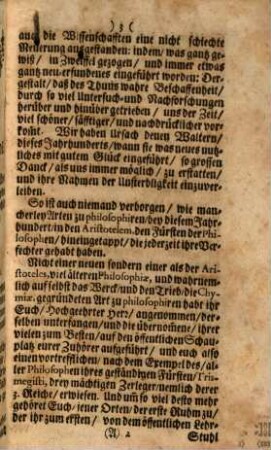 ) 3 (
auch die Wissenschafften eine nicht schlechte
Neuerung außgestanden: indem, was gantz ge-
wiß / in Zweiffel gezogen / und immer etwas
gantz neu-erfundenes eingeführt worden: Der-
gestalt / daß des Thuns wahre Beschaffenheit /
durch so viel Untersuch- und Nachforschungen
herüber und hinüber getrieben / uns der Zeit /
viel schöner / säfftiger / und nachdrücklicher vor-
kom̃t. Wir haben Ursach denen Waltern /
dieses Jahrhunderts / wann sie was neues nutz-
liches mit gutem Glück eingeführt / so grossen
Danck / als uns immer möglich / zu erstatten /
und ihre Nahmen der Unsterbligkeit einzuver-
leiben.
So ist auch niemand verborgen / wie man-
cherley Arten zu philosophiren / bey diesem Jahr-
hundert / in den Aristotelem, den Fürsten der Phi-
losophen / hineingetappt / die jederzeit ihre Ver-
fechter gehabt haben.
Nicht einer neuen sondern einer als der Ari-
stoteles, viel älteren Philosophiæ, und wahrnem-
lich auf selbst das Werck und den Trieb / die Chy-
miæ, gegründeten Art zu philosophiren habt ihr
Euch / Hochgeehrter Herr / angenommen / der-
selben unterfangen / und die übernom̃e / ihrer
vielen zum Besten / auf den öffentlichen Schau-
platz eurer Zuhörer aufgeführt / und euch also
einen vortrefflichen / nach dem Exempel des / al-
ler Philosophen ihres geständigen Fürsten / Tris-
megisti, drey mächtigen Zerleger / nemlich derer
3. Reiche / erwiesen. Und um so viel desto mehr
gehöret Euch / jener Orten / der erste Ruhm zu /
der ihr zum ersten / von dem öffentlichen Lehr-
(A) 2 Stuhl